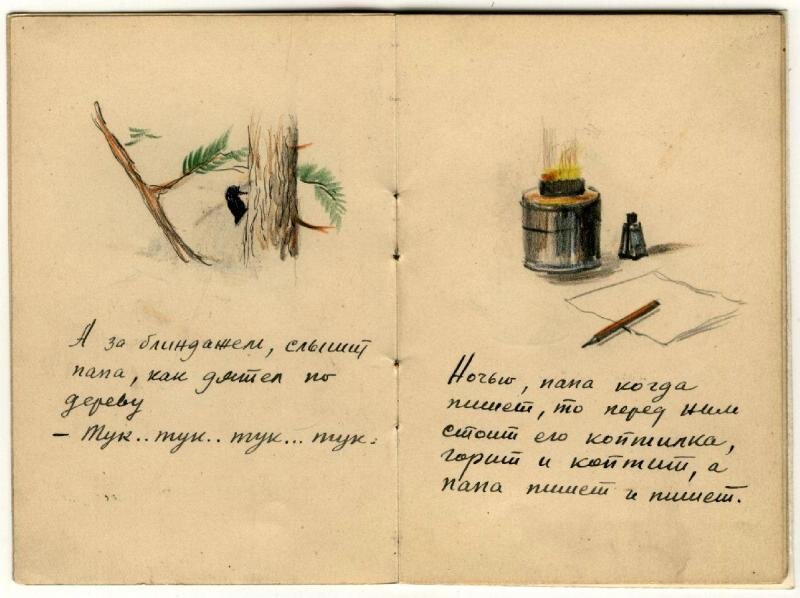 А за блиндажем, слышит
папа, как дятел по
дереву
– Тук.. тук.. тук... тук.
Ночью, папа когда
пишет, то перед ним
стоит его коптилка,
горит и коптит, а
папа пишет и пишет.